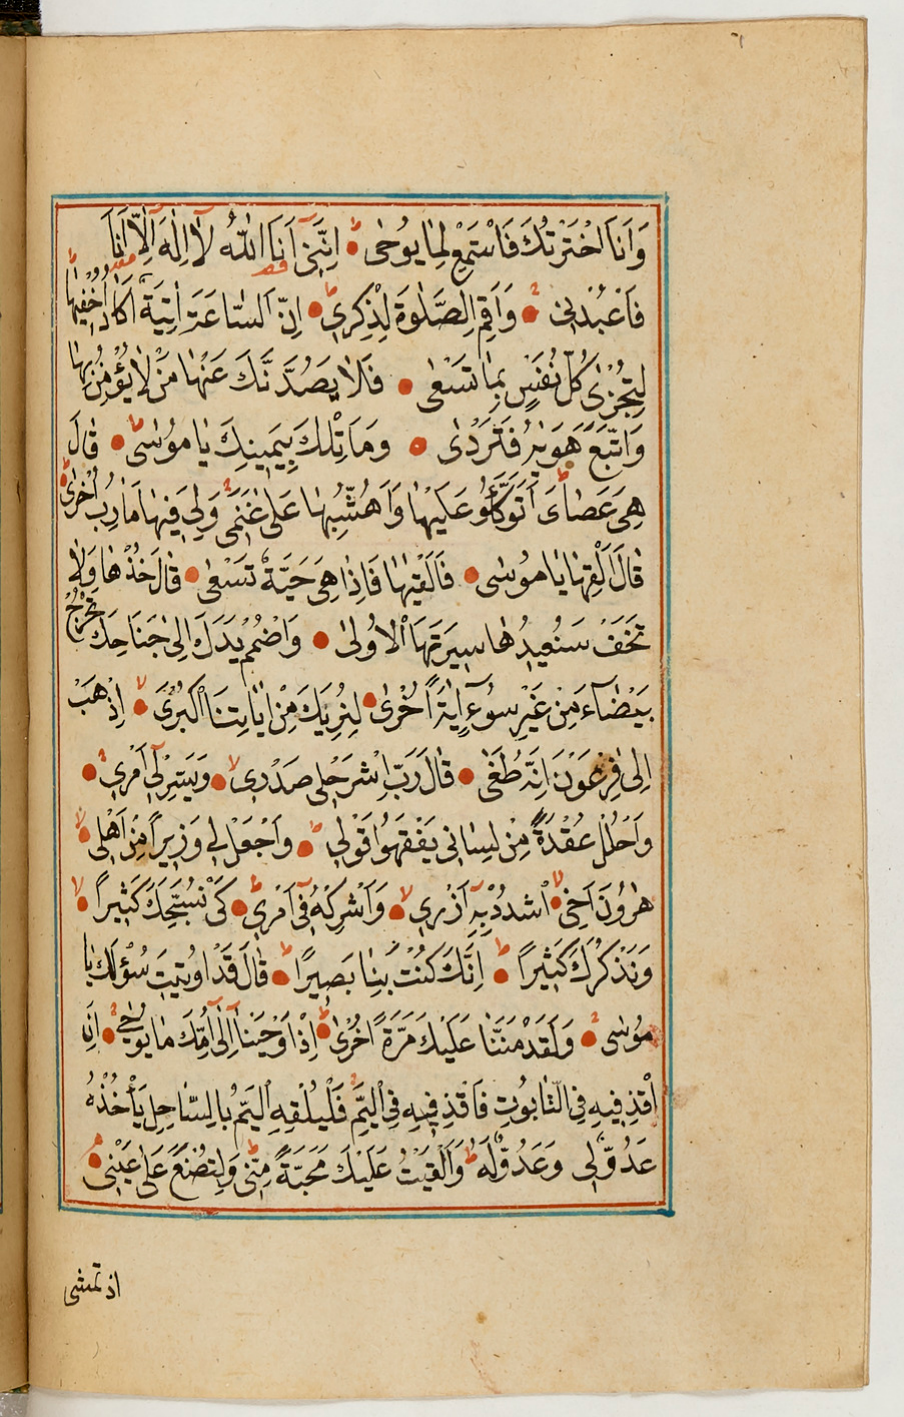 وَاَنَا اخْتَرْتُكَ فَاسْتَمِعْ لِمَا يُوحٰى اِنَّنٖى اَنَا اللّٰهُ لَا اِلٰهَ اِلَّا اَنَا
فَاعْبُدْنٖى وَاَقِمِ الصَّلٰوةَ لِذِكْرٖى اِنَّ السَّاعَةَ اٰتِيَةٌ اَكَادُ اُخْفٖيهَا
لِتُجْزٰى كُلُّ نَفْسٍ بِمَا تَسْعٰى فَلَا يَصُدَّنَّكَ عَنْهَا مَنْ لَا يُؤْمِنُ بِهَا
وَاتَّبَعَ هَوٰيهُ فَتَرْدٰى وَمَا تِلْكَ بِيَمٖينِكَ يَا مُوسٰى قَالَ
هِىَ عَصَاىَ اَتَوَكَّؤُ عَلَيْهَا وَاَهُشُّ بِهَا عَلٰى غَنَمٖى وَلِىَ فٖيهَا مَاٰرِبُ اُخْرٰى
قَالَ اَلْقِهَا يَا مُوسٰى فَاَلْقٰيهَا فَاِذَا هِىَ حَيَّةٌ تَسْعٰى قَالَ خُذْهَا وَلَا
تَخَفْ سَنُعٖيدُهَا سٖيرَتَهَا الْاُولٰى وَاضْمُمْ يَدَكَ اِلٰى جَنَاحِكَ تَخْرُجْ
بَيْضَاءَ مِنْ غَيْرِ سُوءٍ اٰيَةً اُخْرٰى لِنُرِيَكَ مِنْ اٰيَاتِنَا الْكُبْرٰى اِذْهَبْ
اِلٰى فِرْعَوْنَ اِنَّهُ طَغٰى قَالَ رَبِّ اشْرَحْ لٖى صَدْرٖى وَيَسِّرْ لٖى اَمْرٖى
وَاحْلُلْ عُقْدَةً مِنْ لِسَانٖى يَفْقَهُوا قَوْلٖى وَاجْعَلْ لٖى وَزٖيرًا مِنْ اَهْلٖى
هٰرُونَ اَخٖى اُشْدُدْ بِهٖ اَزْرٖى وَاَشْرِكْهُ فٖى اَمْرٖى كَىْ نُسَبِّحَكَ كَثٖيرًا
وَنَذْكُرَكَ كَثٖيرًا اِنَّكَ كُنْتَ بِنَا بَصٖيرًا قَالَ قَدْ اُوتٖيتَ سُؤْلَكَ يَا
مُوسٰى وَلَقَدْ مَنَنَّا عَلَيْكَ مَرَّةً اُخْرٰى اِذْ اَوْحَيْنَا اِلٰى اُمِّكَ مَا يُوحٰى اَنِ
اقْذِفٖيهِ فِى التَّابُوتِ فَاقْذِفٖيهِ فِى الْيَمِّ فَلْيُلْقِهِ الْيَمُّ بِالسَّاحِلِ يَأْخُذْهُ
عَدُوٌّ لٖى وَعَدُوٌّ لَهُ وَاَلْقَيْتُ عَلَيْكَ مَحَبَّةً مِنّٖى وَلِتُصْنَعَ عَلٰى عَيْنٖى
اذ تمشى